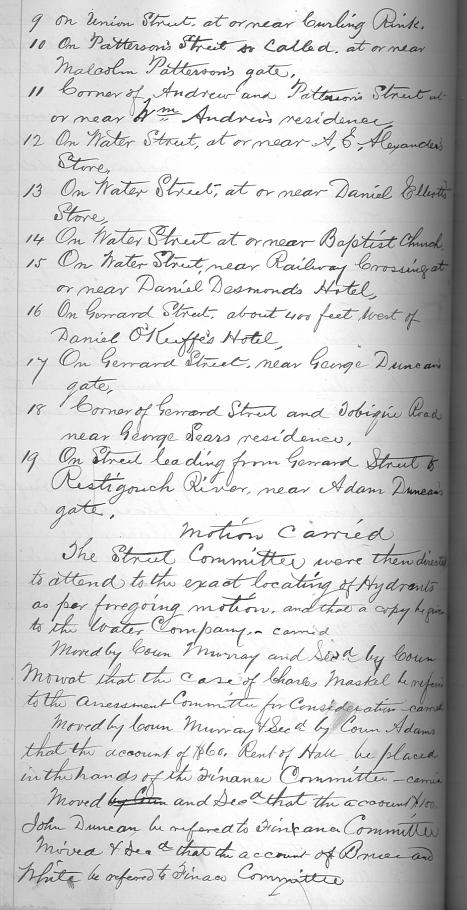 9 On Union Street, at or near Curling Rink.
10 On Patterson's Street so Called, at or near
Malcolm Patterson's gate.
11 Corner of Andrew and Patterson's Street at
or near Wm Andrew's residence,
12 On Water Street, at or near A. E. Alexander's
Store,
13 On Water Street, at or near Daniel Elliott's
Store,
14 On Water Street at or near Baptist Church
15 On Water Street, near Railway Crossing at
or near Daniel Desmonds Hotel,
16 On Gerrard Street, about 400 feet West of
Daniel O'Keiffe's Hotel,
17 On Gerrard Street, near George Duncan's
gate,
18 Corner of Gerrard Street and Tobique Road
near George Sears residence,
19 On Street leading from Gerrard Street to
Restigouch River, near Adam Duncan's
gate.
Motion Carried
The Street Committee were then directed
to attend to the exact locating of Hydrants
as per foregoing motion, and that a copy be given
to the Water Company, - carried
Moved by Coun Murray and Sec'd by Coun
Mowat that the case of Charles Maskel be referred
to the assessment Committee for Consideration - carried
Moved by Coun Murray & Sec'd by Coun Adams
that the account of $60. Rent of Hall be placed
in the hands of the Finance Committee - carried
Moved by Coun and Sec'd that the account $100
John Duncan be referred to Finance Committee
Moved & Sec'd that the account of Bruce and
White be referred to Finace Committee